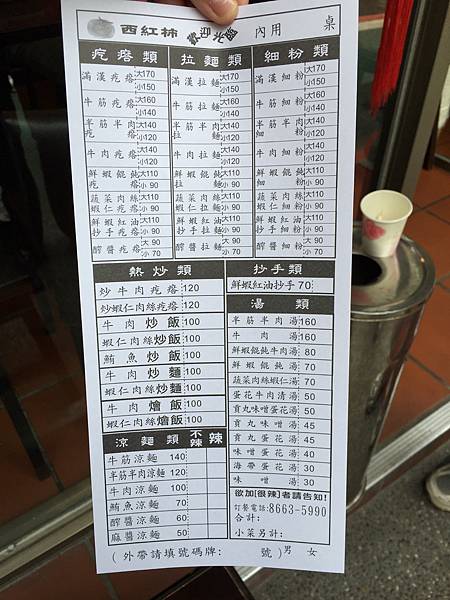 西紅柿 歡迎光臨 內用 桌
疙瘩類 拉麵類 細粉類
滿漢疙瘩 大170 小150 滿漢拉麵 大170 小150 滿漢細粉 大170 小150
牛筋疙瘩 大160 小140 牛筋拉麵 大160 小140 牛筋細粉 大160 小140
半筋半肉疙瘩 大140 小120 半筋半肉拉麵 大140 小120 半筋半肉細粉 大140 小120
牛肉疙瘩 大140 小120 牛肉拉麵 大140 小120 牛肉細粉 大140 小120
鮮蝦餛飩疙瘩 大110 小 90 鮮蝦餛飩拉麵 大110 小 90 鮮蝦餛飩細粉 大110 小 90
蔬菜肉絲蝦仁疙瘩 大110 小 90 蔬菜肉絲蝦仁拉麵 大110 小 90 蔬菜肉絲蝦仁細粉 大110 小 90
鮮蝦紅油抄手疙瘩 大110 小 90 鮮蝦紅油抄手拉麵 大110 小 90 鮮蝦紅油抄手細粉 大110 小 90
醡醬疙瘩 大 90 小 70 醡醬拉麵 大 90 小 70 醡醬細粉 大 90 小 70
熱炒類
炒牛肉疙瘩 120
炒蝦仁肉絲疙瘩 120
牛肉炒飯 100
蝦仁肉絲炒飯 100
鮪魚炒飯 100
牛肉炒麵 100
蝦仁肉絲炒麵 100
牛肉燴飯 100
蝦仁肉絲燴飯 100
涼麵類 不辣 辣
牛筋涼麵 140
半筋半肉涼麵 120
牛肉涼麵 100
鮪魚涼麵 70
醡醬涼麵 60
麻醬涼麵 50
抄手類
鮮蝦紅油抄手 70
湯類
半筋半肉湯 160
牛肉湯 160
鮮蝦餛飩牛肉湯 80
鮮蝦餛飩湯 70
蔬菜肉絲蝦仁湯 70
蛋花牛肉清湯 50
貢丸味噌蛋花湯 50
貢丸味噌湯 45
貢丸蛋花湯 45
味噌蛋花湯 40
海帶蛋花湯 30
味噌湯 30
欲加[很辣]者請告知!
訂餐電話:8663-5990
合計:
小菜另計:
(外帶請填號碼牌: 號) 男 女